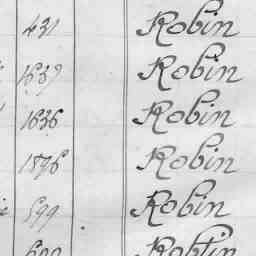 431 Robin
1639 Robin
1636 Robin
1896 Robin
599 Robin
600 Robin